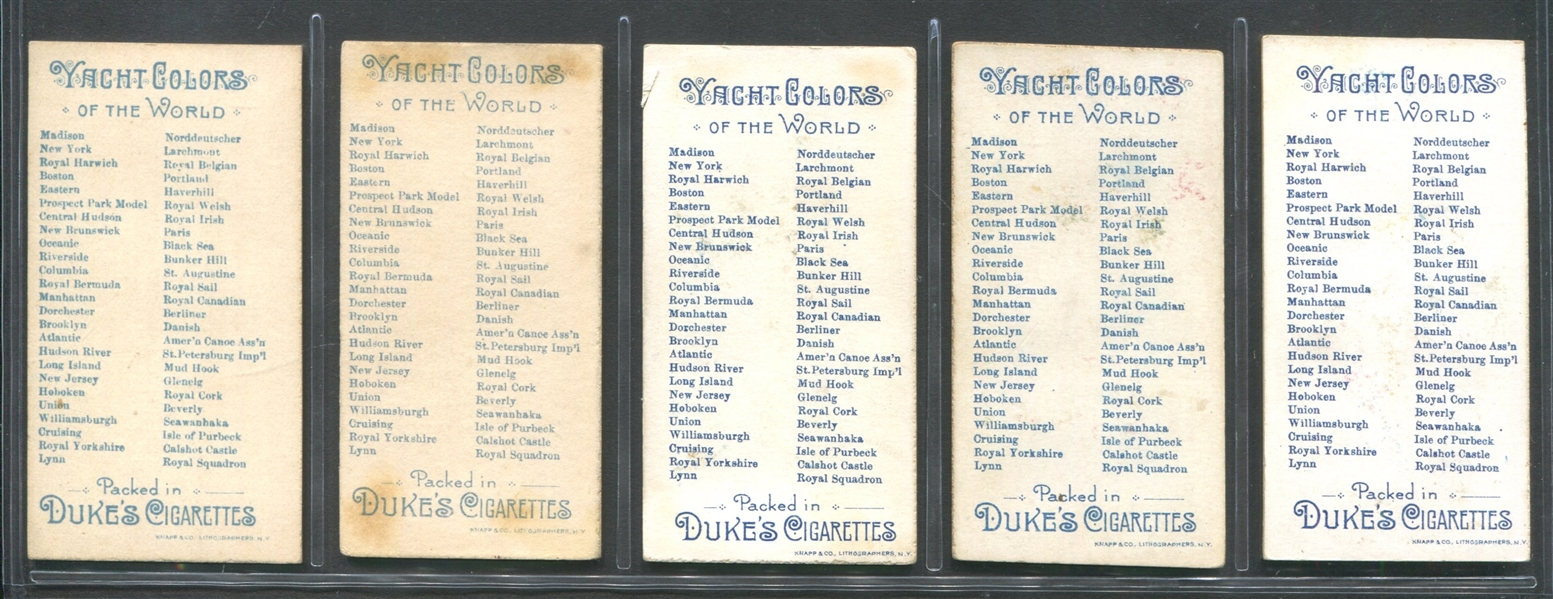 YACHT COLORS
OF THE WORLD
Madison
New York
Royal Harwich
Boston
Eastern
Prospect Park Model
Central Hudson
New Brunswick
Oceanic
Riverside
Columbia
Royal Bermuda
Manhattan
Dorchester
Brooklyn
Atlantic
Hudson River
Long Island
New Jersey
Hoboken
Union
Williamsburgh
Cruising
Royal Yorkshire
Lynn
Norddeutscher
Larchmont
Royal Belgian
Portland
Haverhill
Royal Welsh
Royal Irish
Paris
Black Sea
Bunker Hill
St. Augustine
Royal Sail
Royal Canadian
Berliner
Danish
Amer'n Canoe Ass'n
St.Petersburg Imp'l
Mud Hook
Glenelg
Royal Cork
Beverly
Seawanhaka
Isle of Purbeck
Calshot Castle
Royal Squadron
Packed in
DUKE'S CIGARETTES
KNAPP & CO., LITHOGRAPHERS, N.Y.
YACHT COLORS
OF THE WORLD
Madison
New York
Royal Harwich
Boston
Eastern
Prospect Park Model
Central Hudson
New Brunswick
Oceanic
Riverside
Columbia
Royal Bermuda
Manhattan
Dorchester
Brooklyn
Atlantic
Hudson River
Long Island
New Jersey
Hoboken
Union
Williamsburgh
Cruising
Royal Yorkshire
Lynn
Norddeutscher
Larchmont
Royal Belgian
Portland
Haverhill
Royal Welsh
Royal Irish
Paris
Black Sea
Bunker Hill
St. Augustine
Royal Sail
Royal Canadian
Berliner
Danish
Amer'n Canoe Ass'n
St.Petersburg Imp'l
Mud Hook
Glenelg
Royal Cork
Beverly
Seawanhaka
Isle of Purbeck
Calshot Castle
Royal Squadron
Packed in
DUKE'S CIGARETTES
KNAPP & CO., LITHOGRAPHERS, N.Y.
YACHT COLORS
OF THE WORLD
Madison
New York
Royal Harwich
Boston
Eastern
Prospect Park Model
Central Hudson
New Brunswick
Oceanic
Riverside
Columbia
Royal Bermuda
Manhattan
Dorchester
Brooklyn
Atlantic
Hudson River
Long Island
New Jersey
Hoboken
Union
Williamsburgh
Cruising
Royal Yorkshire
Lynn
Norddeutscher
Larchmont
Royal Belgian
Portland
Haverhill
Royal Welsh
Royal Irish
Paris
Black Sea
Bunker Hill
St. Augustine
Royal Sail
Royal Canadian
Berliner
Danish
Amer'n Canoe Ass'n
St.Petersburg Imp'l
Mud Hook
Glenelg
Royal Cork
Beverly
Seawanhaka
Isle of Purbeck
Calshot Castle
Royal Squadron
Packed in
DUKE'S CIGARETTES
KNAPP & CO., LITHOGRAPHERS, N.Y.
YACHT COLORS
OF THE WORLD
Madison
New York
Royal Harwich
Boston
Eastern
Prospect Park Model
Central Hudson
New Brunswick
Oceanic
Riverside
Columbia
Royal Bermuda
Manhattan
Dorchester
Brooklyn
Atlantic
Hudson River
Long Island
New Jersey
Hoboken
Union
Williamsburgh
Cruising
Royal Yorkshire
Lynn
Norddeutscher
Larchmont
Royal Belgian
Portland
Haverhill
Royal Welsh
Royal Irish
Paris
Black Sea
Bunker Hill
St. Augustine
Royal Sail
Royal Canadian
Berliner
Danish
Amer'n Canoe Ass'n
St.Petersburg Imp'l
Mud Hook
Glenelg
Royal Cork
Beverly
Seawanhaka
Isle of Purbeck
Calshot Castle
Royal Squadron
Packed in
DUKE'S CIGARETTES
KNAPP & CO., LITHOGRAPHERS, N.Y.
YACHT COLORS
OF THE WORLD
Madison
New York
Royal Harwich
Boston
Eastern
Prospect Park Model
Central Hudson
New Brunswick
Oceanic
Riverside
Columbia
Royal Bermuda
Manhattan
Dorchester
Brooklyn
Atlantic
Hudson River
Long Island
New Jersey
Hoboken
Union
Williamsburgh
Cruising
Royal Yorkshire
Lynn
Norddeutscher
Larchmont
Royal Belgian
Portland
Haverhill
Royal Welsh
Royal Irish
Paris
Black Sea
Bunker Hill
St. Augustine
Royal Sail
Royal Canadian
Berliner
Danish
Amer'n Canoe Ass'n
St.Petersburg Imp'l
Mud Hook
Glenelg
Royal Cork
Beverly
Seawanhaka
Isle of Purbeck
Calshot Castle
Royal Squadron
Packed in
DUKE'S CIGARETTES
KNAPP & CO., LITHOGRAPHERS, N.Y.